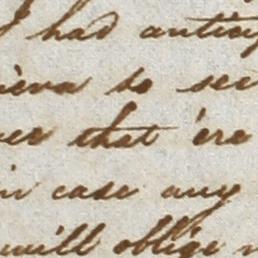 I had antici
to see
that 'ere
in case any
will oblige